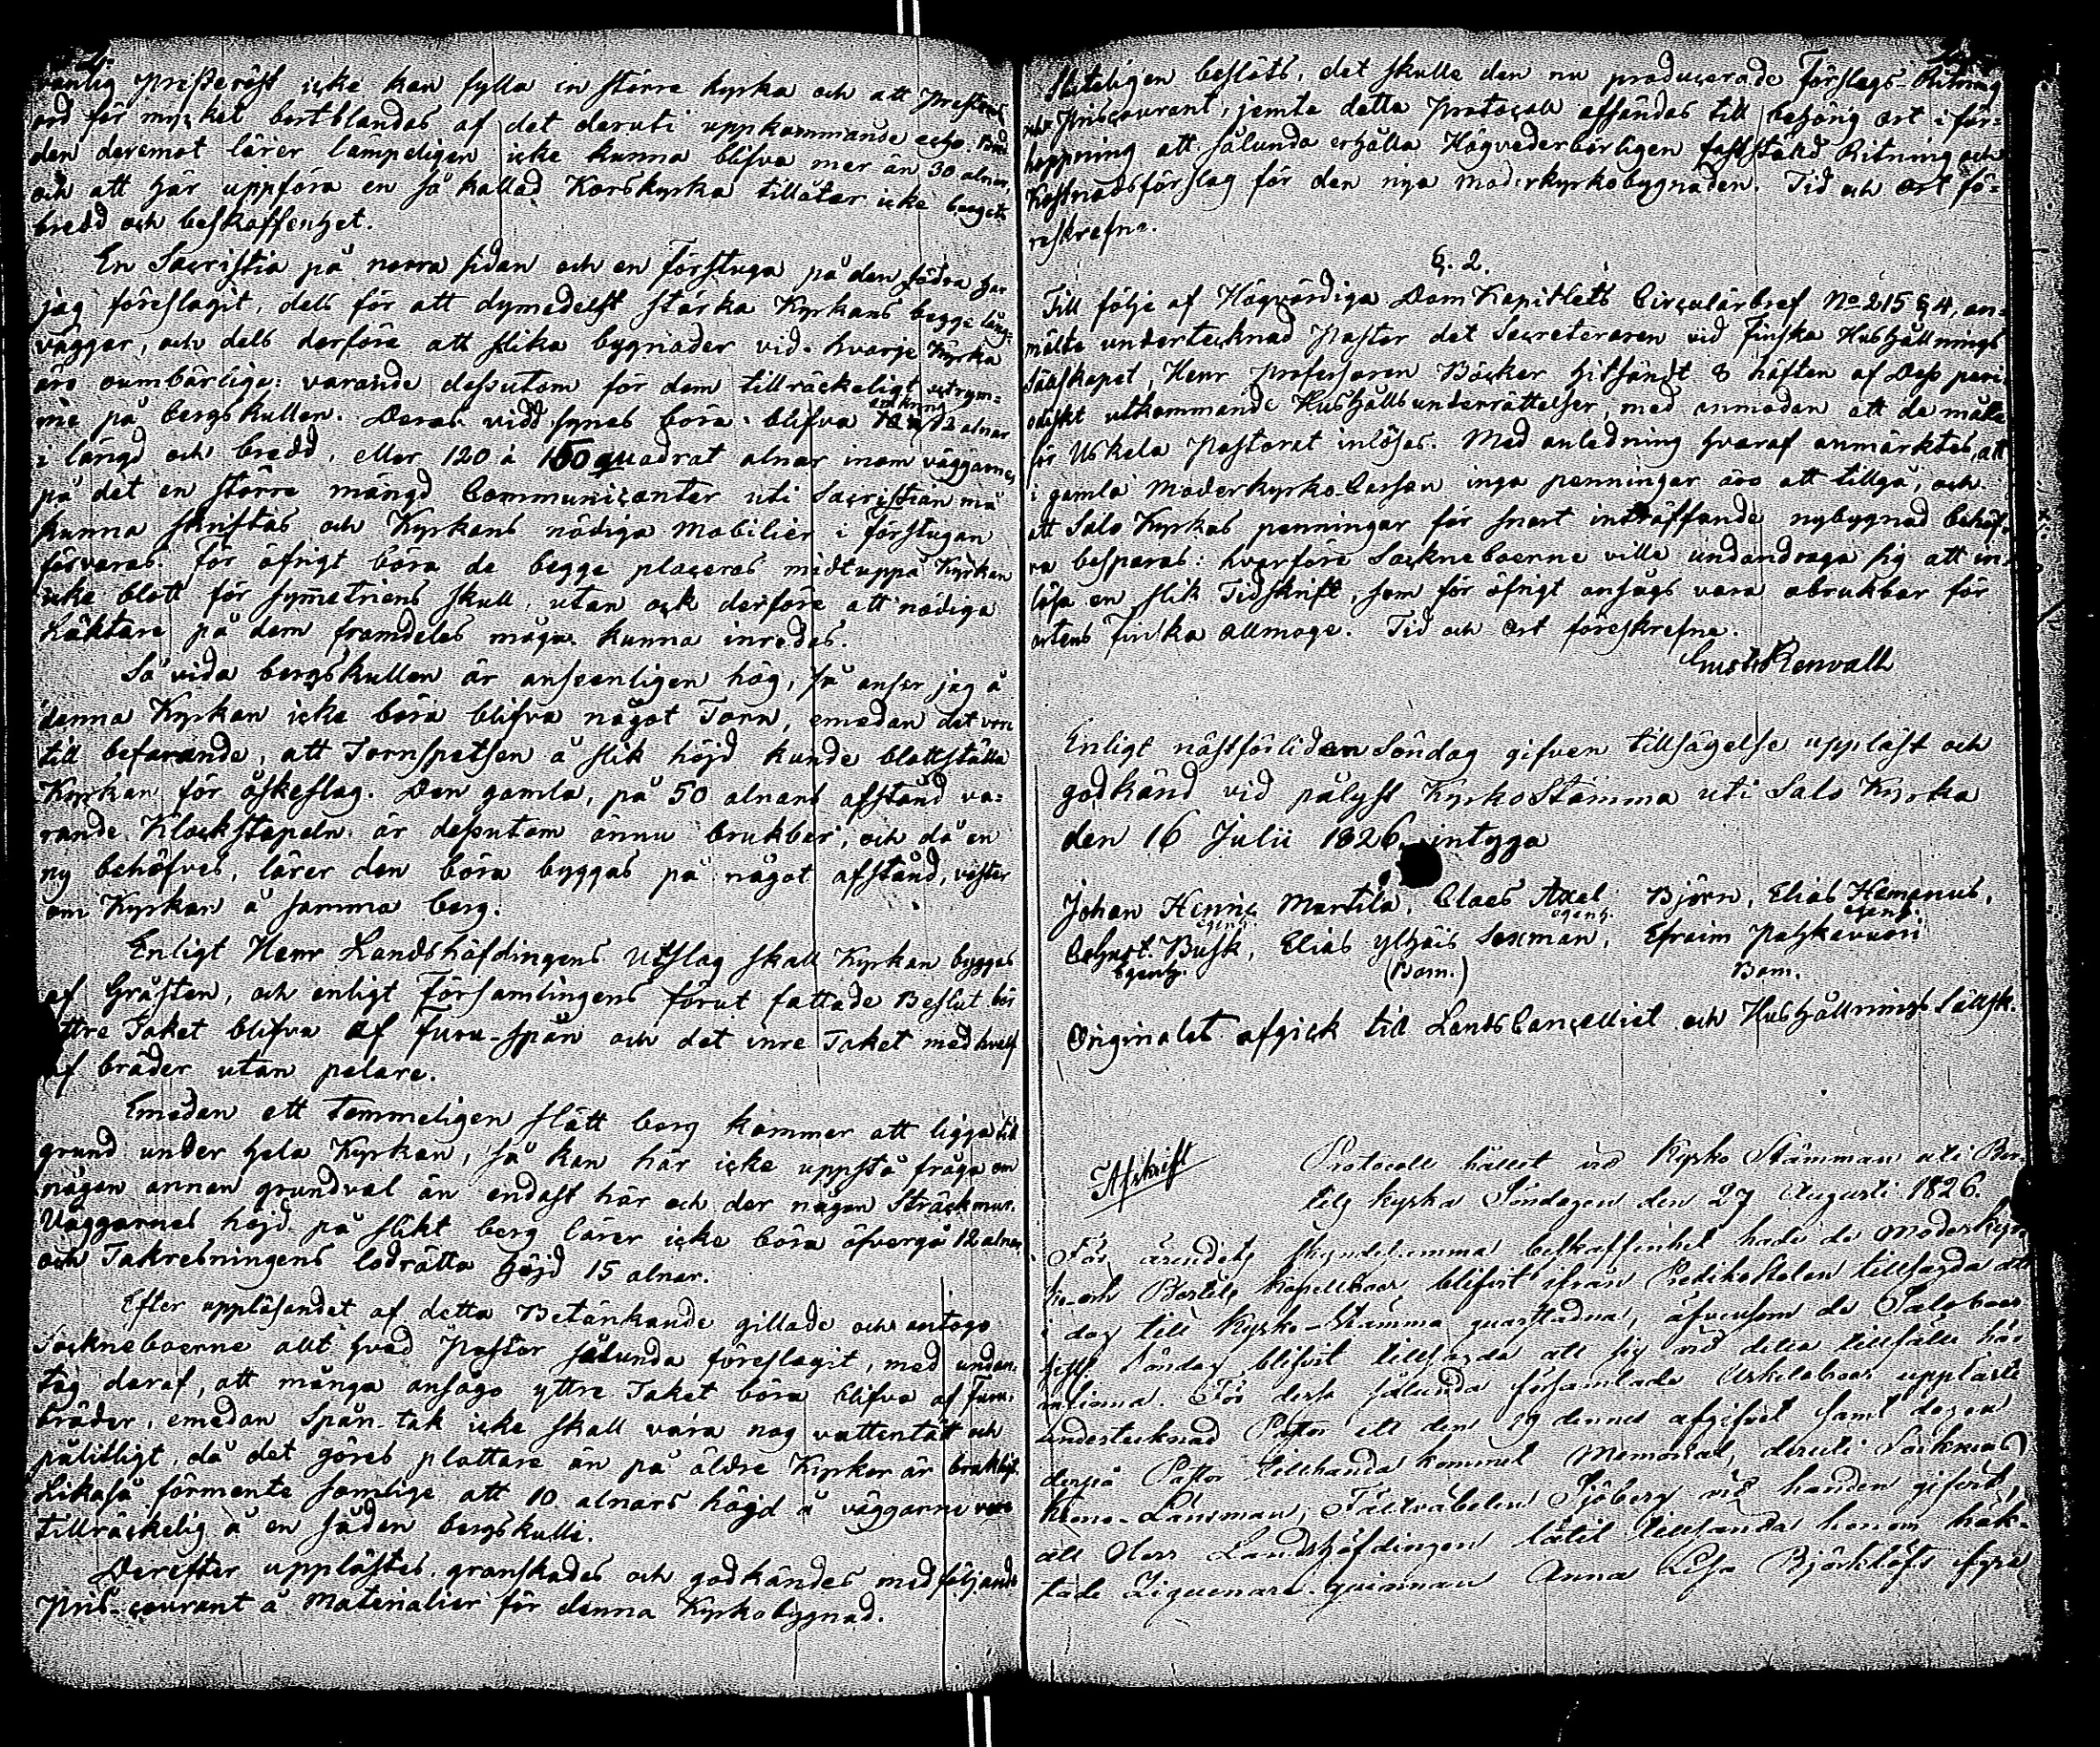 vanlig Presteröst icke kan fylla en större kyrka och att Prestens
ord för mycket bortblandas af det deruti uppkommande echo. Bred
den deremot lärer lämpeligen icke kunna blifva mer än 30 alnar,
och att här uppföra en så kallad Korskyrka tillåter icke bergets
bredd och beskaffenhet.
En Sacristia på norra sidan och en Förstuga på den södra har
jag föreslagit, dels för att dymedelst stärka Kyrkans begge lång=
väggar, och dels derföre att slika bygnader vid hvarje Kyrka
äro oumbärliga: varande dessutom för dem tillräckeligt utrym=
me på bergskullen. Deras vidd synes böra blifva 12 alnar
i längd och bredd, eller 120 à 150 quadrat alnar inom väggarne,
på det en större mängd Communicanter uti Sacristian må
kunna skriftas och Kyrkans nödiga Mobilier i förstugan
förvaras. För öfrigt böra de begge placeras midtuppå Kyrkan
icke blott för symetriens skull, utan ock derföre att nödiga
Läktare på dem framdeles måga kunna inredas.
Så vida bergskullen är ansenligen hög, så anser jag å
denna Kyrkan icke böra blifva något Torn, emedan det vore
till befarande, att Tornspetsen å slik höjd kunde blottställa
Kyrkan för åskeslag. Den gamla, på 50 alnars afstånd va=
rande Klockstapeln är dessutom ännu brukbar, och då en
ny behöfves, lärer den böra byggas på något afstånd, vester
om Kyrkan å samma berg.
Enligt Herr Landshöfdingens Utslag skall Kyrkan byggas
af Gråsten, och enligt Församlingens förut fattade Beslut bör
yttre Taket blifva af Furu-spån och det inre Taket med hvalf
af bräder utan pelare.
Emedan ett temmeligen slätt berg kommer att ligga till
grund under hela Kyrkan, så kan här icke uppstå fråga om
någon annan grundval än endast här och der någon Sträckmur.
Väggarnes höjd på slikt berg lärer icke böra öfvergå 12 alnar
och Takresningens lodrätta höjd 15 alnar.
Efter uppläsandet af detta Betänkande gillade och antogo
Sockneboerne allt hvad Pastor sålunda föreslagit, med undan=
tag deraf, att många ansågo yttre Taket böra blifva af Furu=
bräder, emedan Spån-tak icke skall vara nog vattentät och
pålitligt, då det göres plattare än på äldre Kyrkor är brukligt.
Likaså förmente somlige att 10 alnars höjd å väggarne vore
tillräckelig å en sådan bergskulle.
Derefter upplästes, granskades och godkändes medföljande
Pris-courant å Materialier för denna Kyrkobygnad.
Sluteligen beslöts, det skulle den nu producerade Förslags-Ritning
och Priscourant, jemte detta Protocoll afsändas till behörig ort i för=
hoppning att sålunda erhålla Högvederbörligen fastställd Ritning och
Kostnadsförslag för den nya Moderkyrkobygnaden. Tid och ort fö=
reskrefne.
§. 2.
Till följe af Högvördiga Dom Kapitlets Circulärbref No 215 § 4, an=
mälte undertecknad Pastor det Secreteraren vid Finska Hushållnings
Sällskapet, Herr Professoren Böcker hitsändt 8 häften af Dess peri
odiskt utkommande Hushålls underrättelser, med anmodan att de måtte
för Uskela Pastorat inlösas. Med anledning hvaraf anmärktes, att
i gamla Moderkyrko-Cassan inga penningar äro att tillgå, och
att Salo Kyrkas penningar för snart inträffande nybygnad behöf=
va besparas: hvarföre Sockneboerne ville undandraga sig att in=
lösa en slik Tidskrift, som för öfrigt ansågs vara obrukbar för
ortens Finska Allmoge. Tid och ort föreskrefne.
Gust. Renvall
Enligt nästförliden Söndag gifven tillsägelse uppläst och
godkänd vid pålyst KyrkoStämma uti Salo Kyrka
den 16 Julii 1826, intyga
Johan Martila, Claes Axel Björn, Elias Hemanus,
egenh. egenh. egenh.
Busk, Elias Ylhäis Saxman, Efraim Palkavuori
Egenh. (Bom.) Bom.
Originalet afgick till LandsCancelliet och Hushållnings Sällsk.
Afskrift
Protocoll hållit vid Kyrko Stämman uti Ber-
telç kyrka Söndagen den 27 Augusti 1826.
För ärendets skyndesamma beskaffenhet hade de Moderkyr-
ko- och Bertels Kapellboar blifvit ifrån Predikstolen tillsagda att
i dag till Kyrko-Stämma quarstadna, äfvensom de Saloboar
sistl. Söndag blifvit tillsagda att sig vid detta tillfälle här
infinna. För dessa sålunda församlade Uskelaboar upplästes
undertecknad Pastor ett den 19 dennes afgifvet samt dagen
derpå Pastor tillhanda kommit Memorial, deruti Socknens
Krono-Länsman, Fältväbelen Sjöberg vid handen gifvit,
att Herr Landshöfdingen låtit tillsända honom häk-
tade Ziguenare-quinnan Anna Lisa Björklöfs fyra